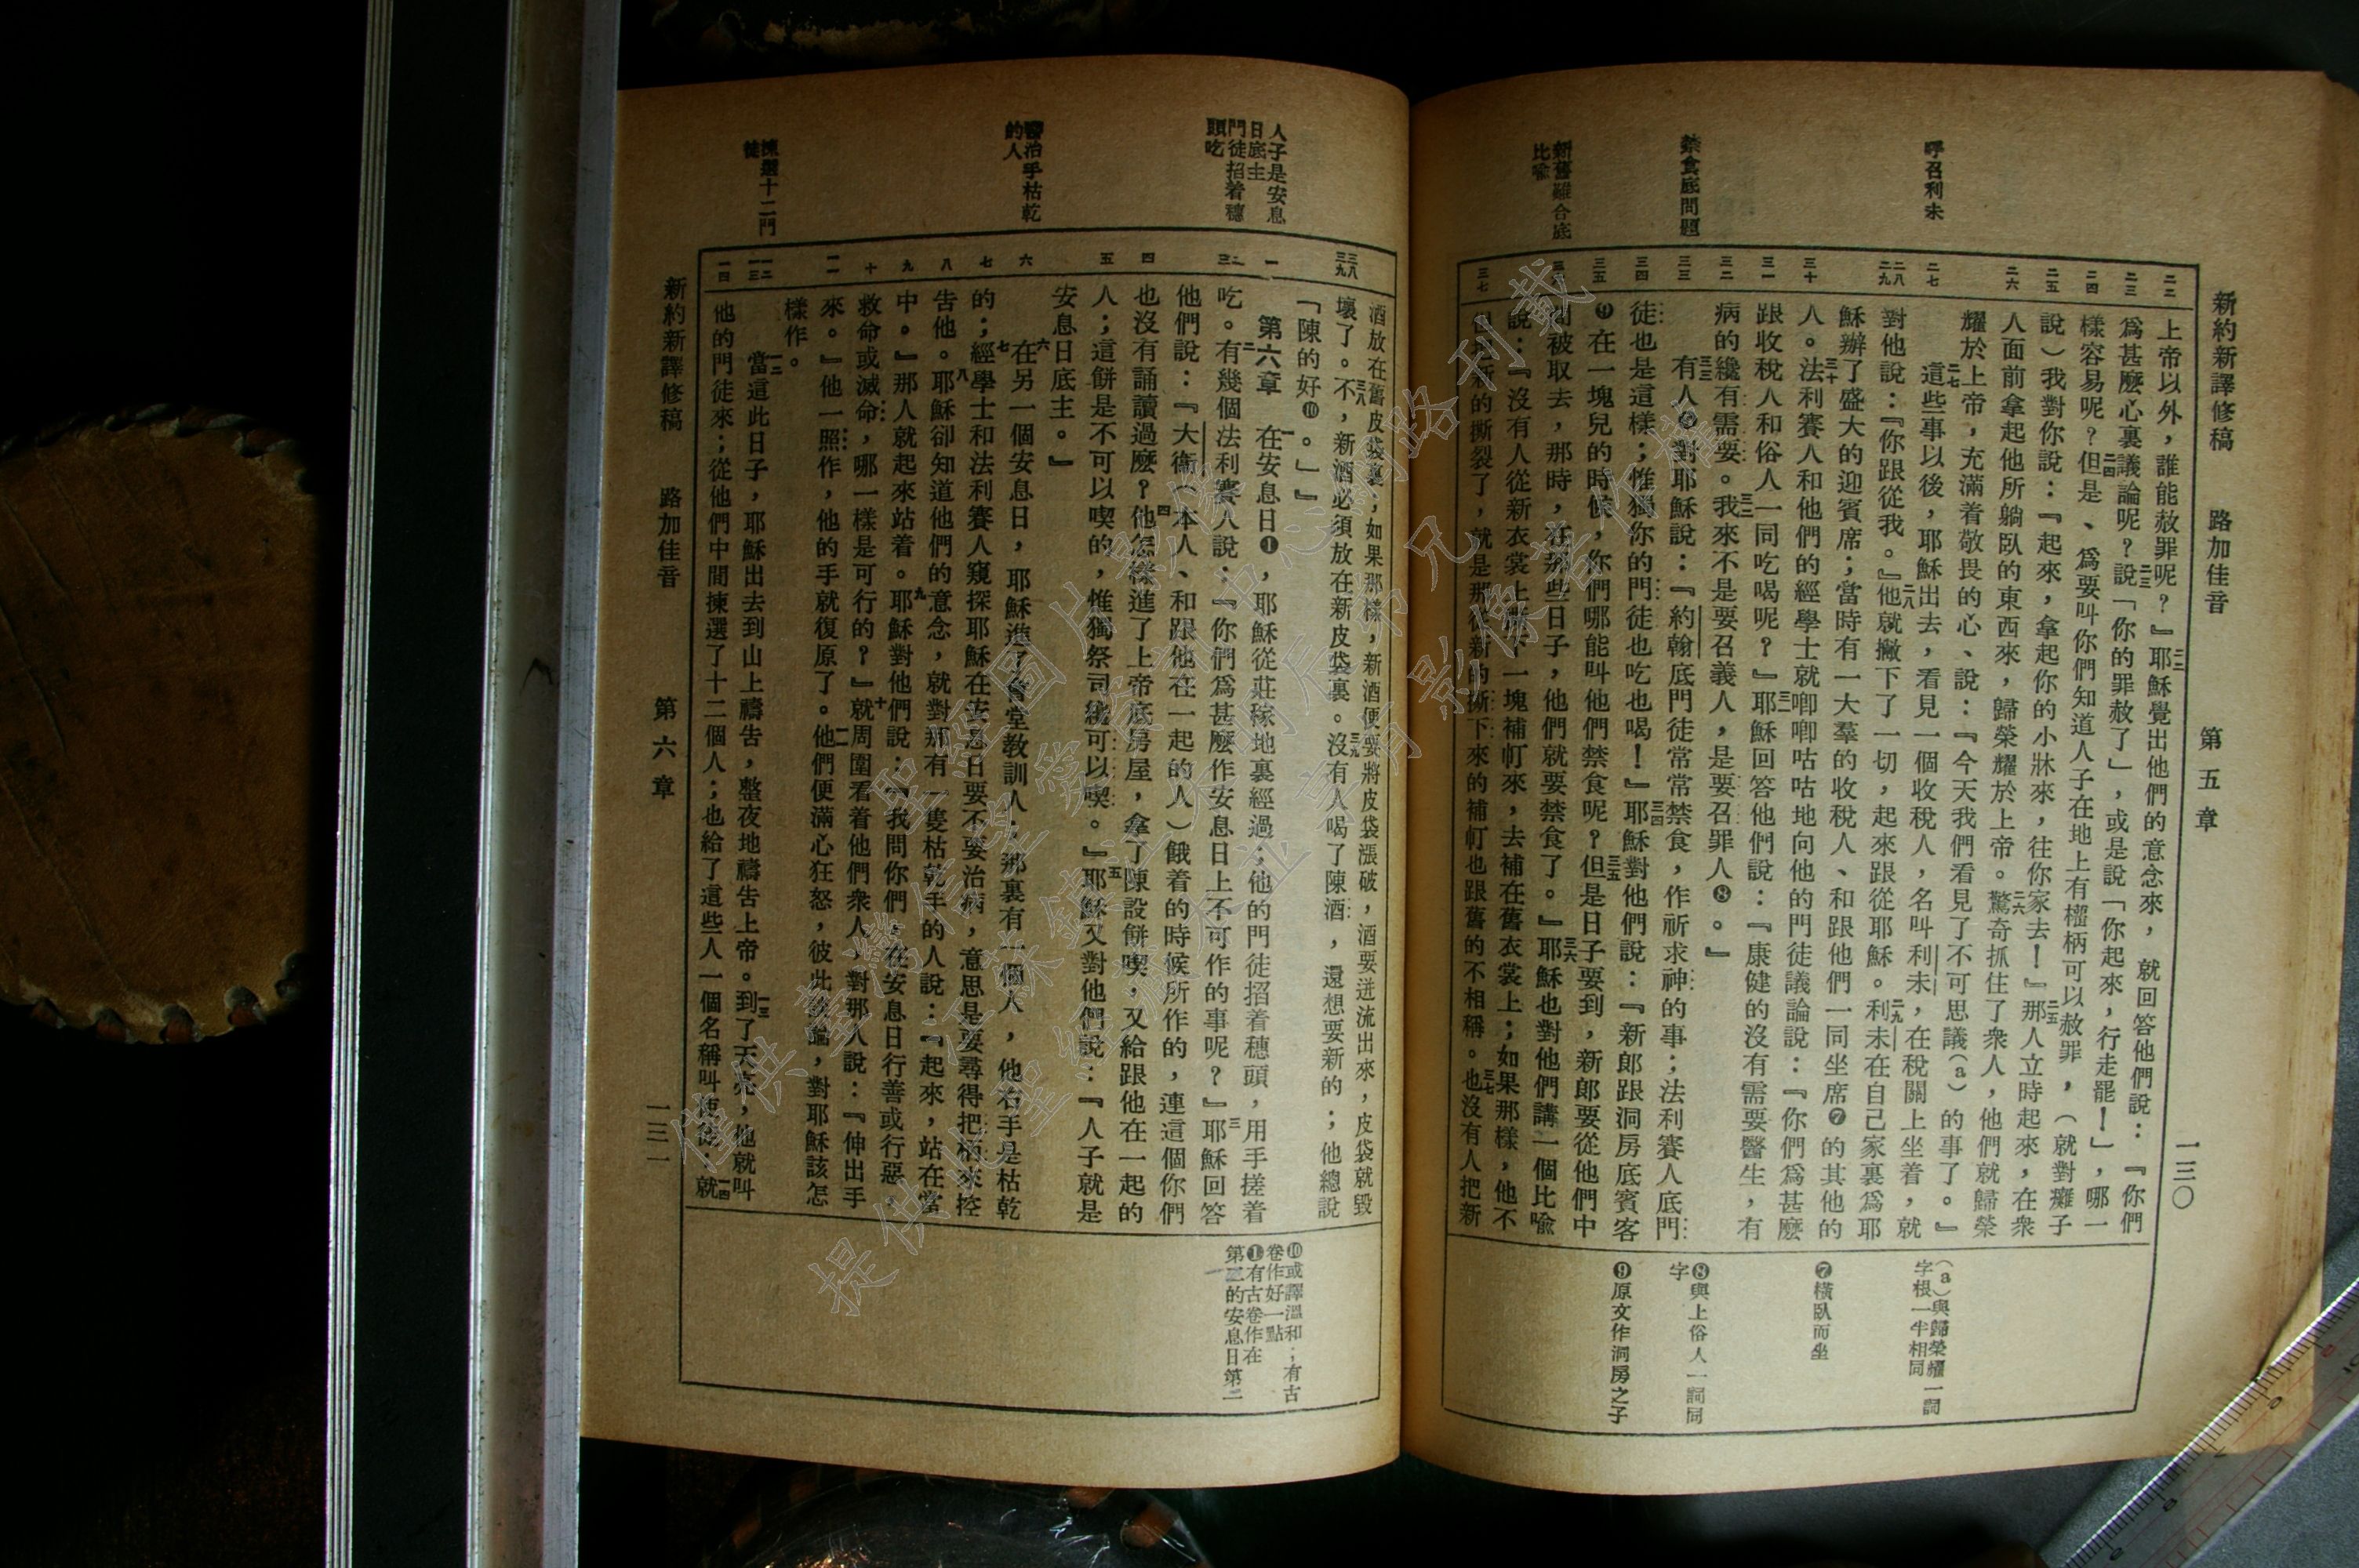 新約新譯修稿　路加佳音　第五章　一三〇
呼召利未
禁食底問題
新舊難合底
比喻
二二
二三
二四
二五
二六
二七
二八
二九
三十
三一
三二
三三
三四
三五
三七
上帝以外，誰能赦罪呢？』二二耶穌覺出他們的意念來，就回答他們說：『你們
爲甚麼心裏議論呢？二三說「你的罪赦了」，或是說「你起來，行走罷！」，哪一
樣容易呢？二四但是、爲要叫你們知道人子在地上有權柄可以赦罪，（就對癱子
說）我對你說：『起來，拿起你的小牀來，往你家去！』二五那人立時起來，在衆
人面前拿起他所躺臥的東西來，歸榮耀於上帝。二六驚奇抓住了衆人，他們就歸榮
耀於上帝，充滿着敬畏的心、說：『今天我們看見了不可思議（a）的事了。』
二七這些事以後，耶穌出去，看見一個收稅人，名叫利未，在稅關上坐着，就
對他說：『你跟從我。』二八他就撇下了一切，起來跟從耶穌。二九利未在自己家裏爲耶
穌辦了盛大的迎賓席；當時有一大羣的收稅人、和跟他們一同坐席❼的其他的
人。三十法利賽人和他們的經學士就唧唧咕咕地向他的門徒議論說：『你們爲甚麼
跟收稅人和俗人一同吃喝呢？』三一耶穌回答他們說：『康健的沒有需要醫生，有
病的纔有需要。三二我來不是要召義人，是要召罪人❽。』
三三有人對耶穌說：『約翰底門徒常常禁食，作祈求神的事；法利賽人底門
徒也是這樣；惟獨你的門徒也吃也喝！』三四耶穌對他們說：『新郎跟洞房底賓客
❾在一塊兒的時候，你們哪能叫他們禁食呢？三五但是日子要到，新郎要從他們中
間被取去，那時，在那些日子，他們就要禁食了。』三六耶穌也對他們講一個比喻
說：『沒有人從新衣裳上撕下一塊補帄來，去補在舊衣裳上；如果那樣，他不
但把新的撕裂了，就是那從新的撕下來的補帄也跟舊的不相稱。三七也沒有人把新
（a）與歸榮耀一詞
字根一半相同
❼橫臥而坐
❽與上俗人一詞同
字
❾原文作洞房之子
人子是安息
日底主
門徒招着穗
頭吃
醫治手枯乾
的人
揀選十二門
徒
三八
三九
一
二
三
四
五
六
七
八
九
十
一一
一二
一三
一四
酒放在舊皮袋裏；如果那樣，新酒便要將皮袋漲破，酒要迸流出來，皮袋就毀
壞了。三八不，新酒必須放在新皮袋裏。三九沒有人喝了陳酒，還想要新的；他總說
「陳的好❿。」』
第六章　一在安息日❶，耶穌從莊稼地裏經過；他的門徒招着穗頭，用手搓着
吃。二有幾個法利賽人說：『你們爲甚麼作安息日上不可作的事呢？』三耶穌回答
他們說：『大衞（本人、和跟他在一起的人）餓着的時候所作的，連這個你們
也沒有誦讀過麼？四他怎樣進了上帝底房屋，拿了陳設餅喫，又給跟他在一起的
人；這餅是不可以喫的，惟獨祭司纔可以喫。』五耶穌又對他們說：『人子就是
安息日底主。』
六在另一個安息日，耶穌進了會堂教訓人；那裏有一個人，他右手是枯乾
的；七經學士和法利賽人窺探耶穌在安息日要不要治病，意思是要尋得把柄來控
告他。八耶穌卻知道他們的意念，就對那有一隻枯乾手的人說：『起來，站在當
中。』那人就起來站着。九耶穌對他們說：『我問你們，在安息日行善或行惡，
救命或滅命，哪一樣是可行的？』十就周圍看着他們衆人，對那人說：『伸出手
來。』他一照作，他的手就復原了。一一他們便滿心狂怒，彼此談論，對耶穌該怎
樣作。
一二當這此日子，耶穌出去到山上禱告，整夜地禱告上帝。一三到了天亮，他就叫
他的門徒來；從他們中間揀選了十二個人；也給了這些人一個名稱叫使徒：一四就
❿或譯溫和；有古
卷作好一點
❶有古卷作在
第二的安息日第二
新約新譯修稿　路加佳音　第六章　一三一